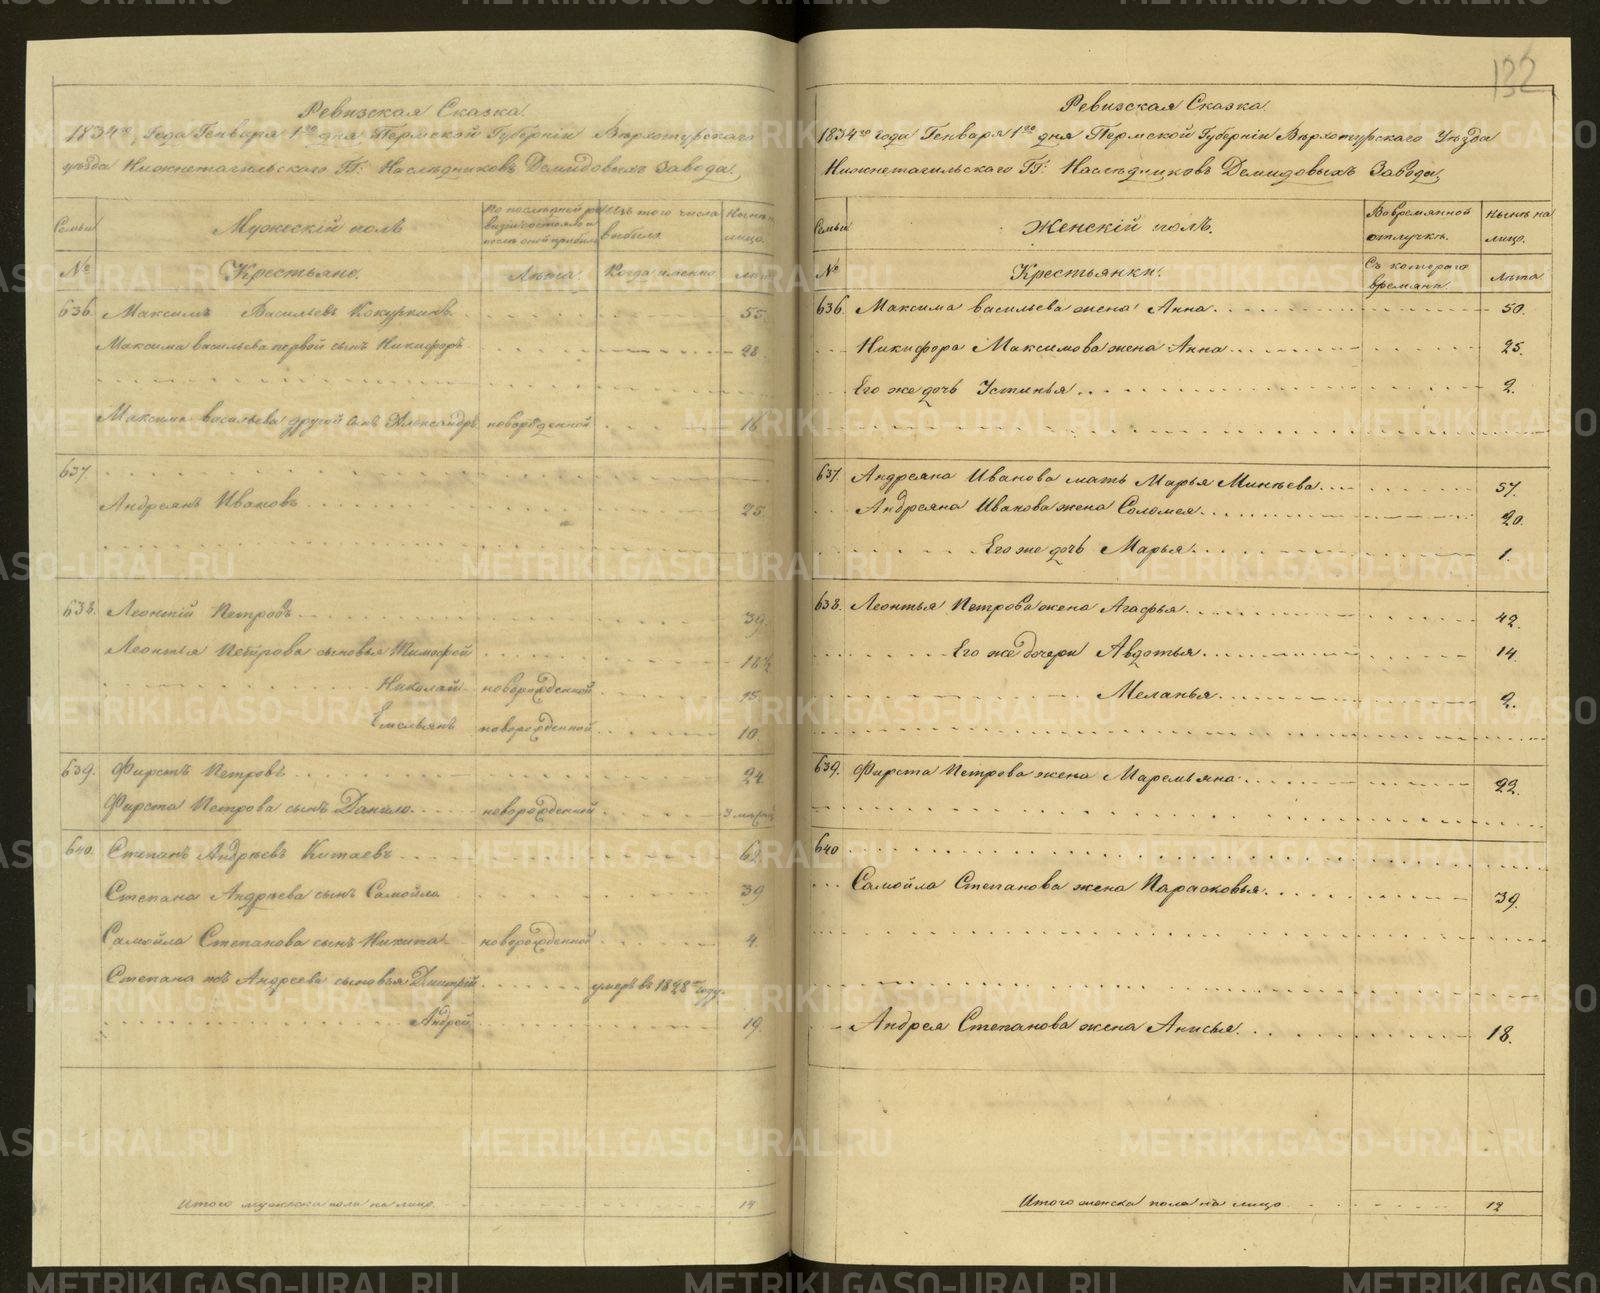 132
Ревизская Сказка
1834го Года Генваря 1го дня Пермской Губернiи Верхотурскаго
уѣзда Нижнетагильскаго ГГ: Наслѣдниковъ Демидовыхъ Завода,
Семьи Мужескiй полъ По послѣдней ревизiи состояло и послѣ оной прибыло Изъ того числа выбыло Нынѣ на лицо
№ Крестьяне. Лѣта Когда именно лѣта
636. Максимъ Васильевъ Кокуркинъ 55.
Максима васильева первой сынъ Никифоръ 28.
Максима васильева другой сынъ Александръ новорожденной 16
637.
Андреянъ Ивановъ 25.
638. Леонтiй Петровъ 39.
Леонтья Петрова сыновья Тимофей 18½
Николай новорожденной 15.
Емельянъ новорожденной 10.
639. Фирстъ Петровъ 24.
Фирста Петрова сынъ Данило новорожденной 3 месяц
640. Степанъ Андрѣевъ Китаевъ 62
Степана Андрѣева сынъ Самойла 39
Самойла Степанова сынъ Никита новорожденной 4.
Степана жъ Андреева сыновья Дмитрiй умеръ в 1828м году.
Андрей 19.
Итого мужеска пола на лицо 14
Ревизская Сказка
1834го года Генваря 1го дня Пермской Губернiи Верхотурскаго Уѣзда
Нижнетагильскаго ГГ: Наслѣдниковъ Демидовыхъ Завода,
Семьи Женскiй полъ. Во временной отлучкѣ. Нынѣ на лицо.
№ Крестьянки. Съ котораго времяни. Лѣта
636. Максима васильева жена Анна 50.
Никифора Максимова жена Анна 25.
Его же дочь Устинья 2.
637. Андреяна Иванова мать Марья Минѣева 57.
Андреяна Иванова жена Соломея 20.
Его же дочь Марья 1.
638. Леонтья Петрова жена Агафья 42.
Его же дочери Авдотья 14.
Меланья 2.
639. Фирста Петрова жена Маремьяна 22.
640
Самойла Степанова жена Парасковья 39.
Андрея Степанова жена Анисья 18.
Итого женска пола на лицо 12
METRIKI.GASO-URAL.RU